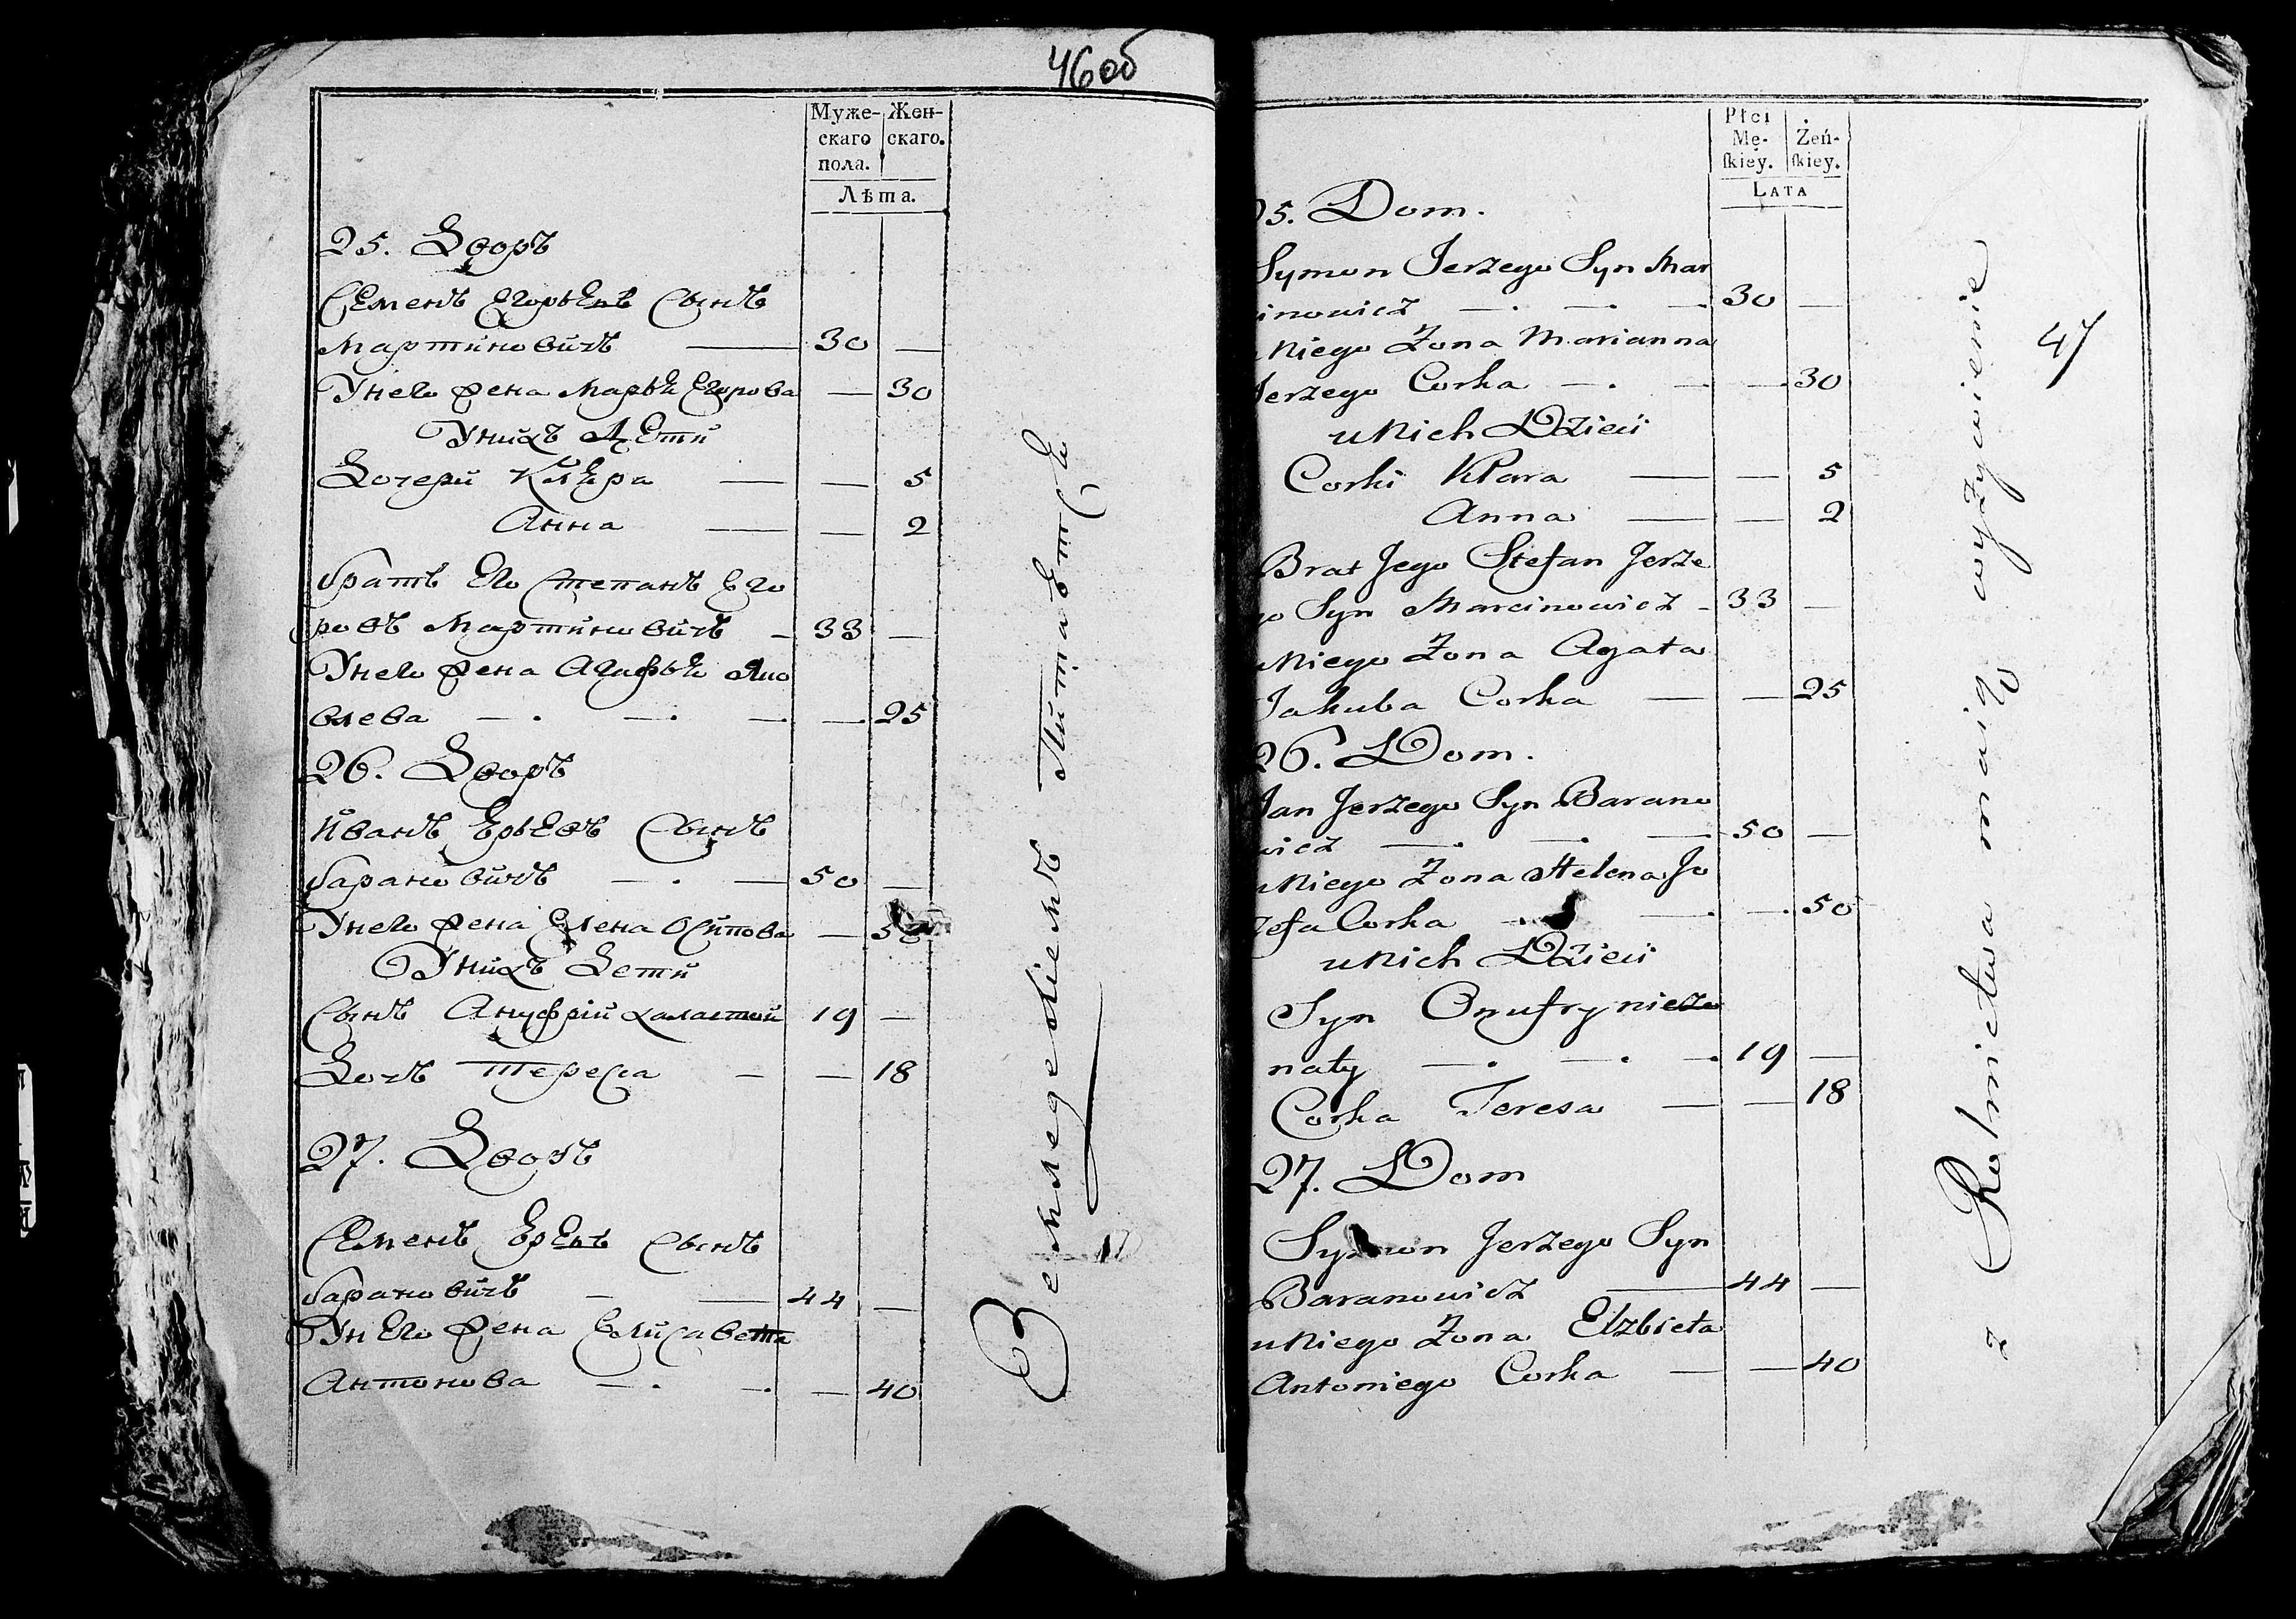 46об
Муже- Жен-
скаго скаго.
пола.
Лѣта.
25. Дворъ
Семенъ Егорьевъ Сынъ
Мартиновичъ — 30 —
Унего жена Марья Егорова — 30
Унихъ Дети
Дочери Кляра — — 5
Анна — — 2
братъ Его Степанъ Его
ровъ Мартиновичъ — 33 —
Унего жена Агафья Яко
влева — . — . — — 25
26. Дворъ
Иванъ Ерьевъ Сынъ
барановичъ — . — 50 —
Унего жена Елена Осипова —
Унихъ Дети
Сынъ Ануфрій халастой 19 —
Дочь Тереса — — 18
27. Дворъ
Семенъ Ерьевъ Сынъ
барановичъ — — 44 —
Унего жена Елисавета
Антонова — . — . — 40
Земледелiемъ Питаютсе
Płci
Mę- Żeń-
ſkiey. ſkiey.
LATA
25. Dom.
Symon Jerzego Syn Mar
cinowicz — . — . — 30 —
uNiego Żona Marianna
Jerzego Corka — . — — 30
uNich Dzieci
Corki Klara — — 5
Anna — — 2
Brat Jego Stefan Jerze
go Syn Marcinowicz - 33 —
uNiego Żona Agata
Jakuba Corka — — 25
26. Dom.
Jan Jerzego Syn Barano
wicz — . — . — 50 —
uNiego Żona Helena Jo
zefa Corka — — . — . 50
uNich Dzieci
Syn Onufry nieże
naty — . — . — . 19 —
Corka Teresa — — 18
27. Dom
Symon Jerzego Syn
Baranowicz — 44 —
uNiego Żona Elzbieta
Antoniego Corka — — 40
z Rolnictwa maią wyżywienie
47